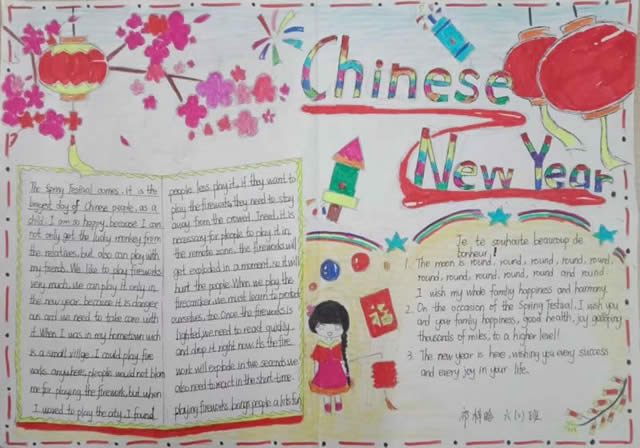 Chinese
New Year
The Spring Festival comes, it is the
biggest day of Chinese people, as a
child, I am so happy, because I can
not only get the lucky monkey from
the but also can play with
my friends. We like to play fireworks
very much, we can play it only in
the new year, because it is danger
ous and we need to take care with
it. When I was in my hometown wich
is a small village. I could play fire
works anywhere, people would not blam
me for playing the firework, but when
I moved to play the city, I found
people less play it, if they want to
play the fireworks, they need to stay
away from the crowd. Ineed, it is
necessary for people to play it in
the remote zone, the fireworks will
get exploded in a moment, so it will
hurt the people. When we play the
firecracker, we must learn to protect
ourselves, too. Once the fireworks is
lighted, we need to react quickly
and drop it right now. the fire
work will explode in two seconds, we
also need to react in the short time.
playing fireworks brings people a lots fun
福
Je te souhaite beaucoup de
bonheur!
1. The moon is round, round, round, round, round,
round, round, round, round, round and round.
I wish my whole family happiness and harmony.
2. On the occasion of the Spring Festival, I wish you
and your family happiness, good health, joy galloping
thousands of miles, to a higher level!
3. The new year is here, wishing you every success
and every joy in your life.
六(1)班